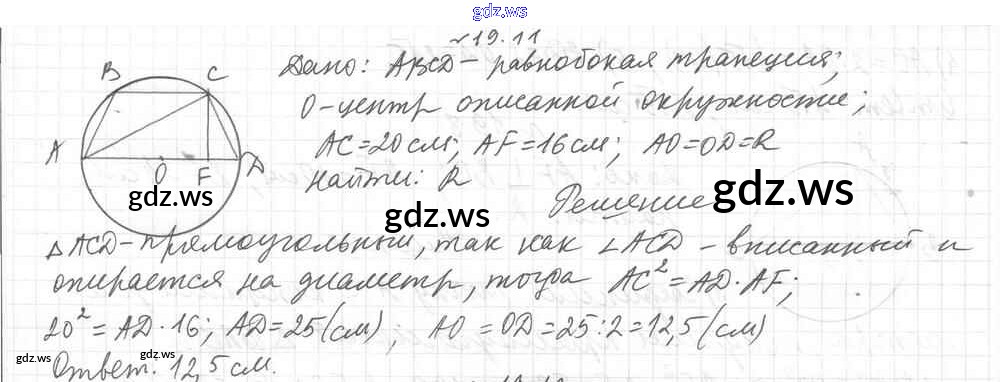 gdz.ws
№19.11
Дано: ABCD – равнобокая трапеция;
B C
O – центр описанной окружности;
AC = 20 см; AF = 16 см; AO = OD = R
A O F D
Найти: R
gdz.ws gdz.ws gdz.ws
Решение
△ ACD – прямоугольный, так как ∠ ACD – вписанный и
опирается на диаметр, тогда AC² = AD · AF;
20² = AD · 16; AD = 25 (см), AO = OD = 25 : 2 = 12,5 (см)
gdz.ws gdz.ws
Ответ: 12,5 см.